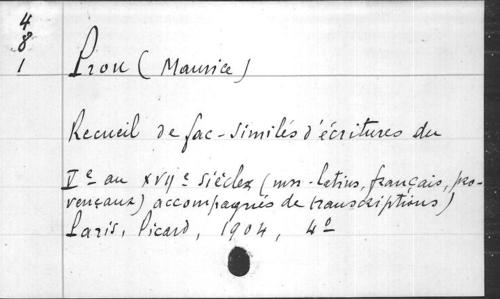 4
8
1
Prou (Maurice)
Recueil de fac-similés d'écritures du
Ve au XVIIe siècles (mss. latins, français, pro-
vençaux) accompagnés de transcriptions)
Paris, Picard, 1904, 4o